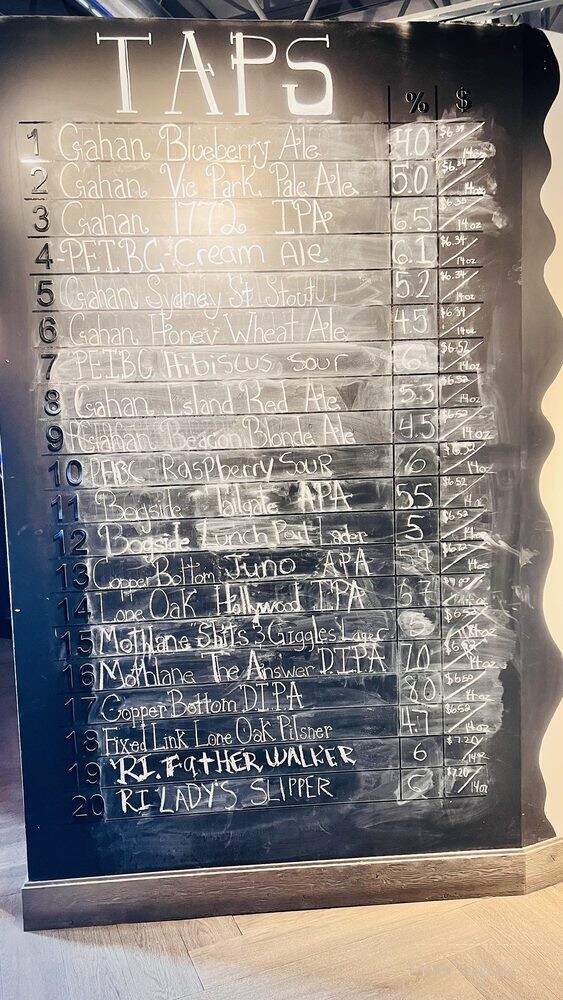 TAPS
% $
1 Gahan Blueberry Ale 4.0 14oz
2 Gahan Vic Park Pale Ale 5.0 14oz
3 Gahan 1772 IPA 6.5 14oz
4 -PEIBC-Cream Ale 6.1 $6.34 14oz
5 Gahan Sydney St Stout 5.2 $6.34 14oz
6 Gahan Honey Wheat Ale 4.5 $6.34 14oz
7 PEIBC Hibiscus Sour 6 $6.52 14oz
8 Gahan Island Red Ale 5.3 $6.52 14oz
9 Gahan Beacon Blonde Ale 4.5 $6.52 14oz
10 PEIBC - Raspberry SouR 6 14oz
11 Bogside Tailgate APA 5.5 $6.52
12 Bogside Lunch Pail Lager 5 $6.52 14oz
13 Copper Bottom Juno APA 5.9 14oz
14 Lone Oak Hollywood IPA 6.7
15 Mothlane "Shits 3 Giggles" Lager 5 14oz
16 Mothlane The Answer D.I.P.A 7.0 14oz
17 Copper Bottom D.I.P.A 8.0 $6.50 14oz
18 Fixed Link Lone Oak Pilsner 4.7 $6.52 14oz
19 R.I. FatHER WALKER 6 $7.20 14oz
20 RI LADY'S SLIPPER $7.20 14oz